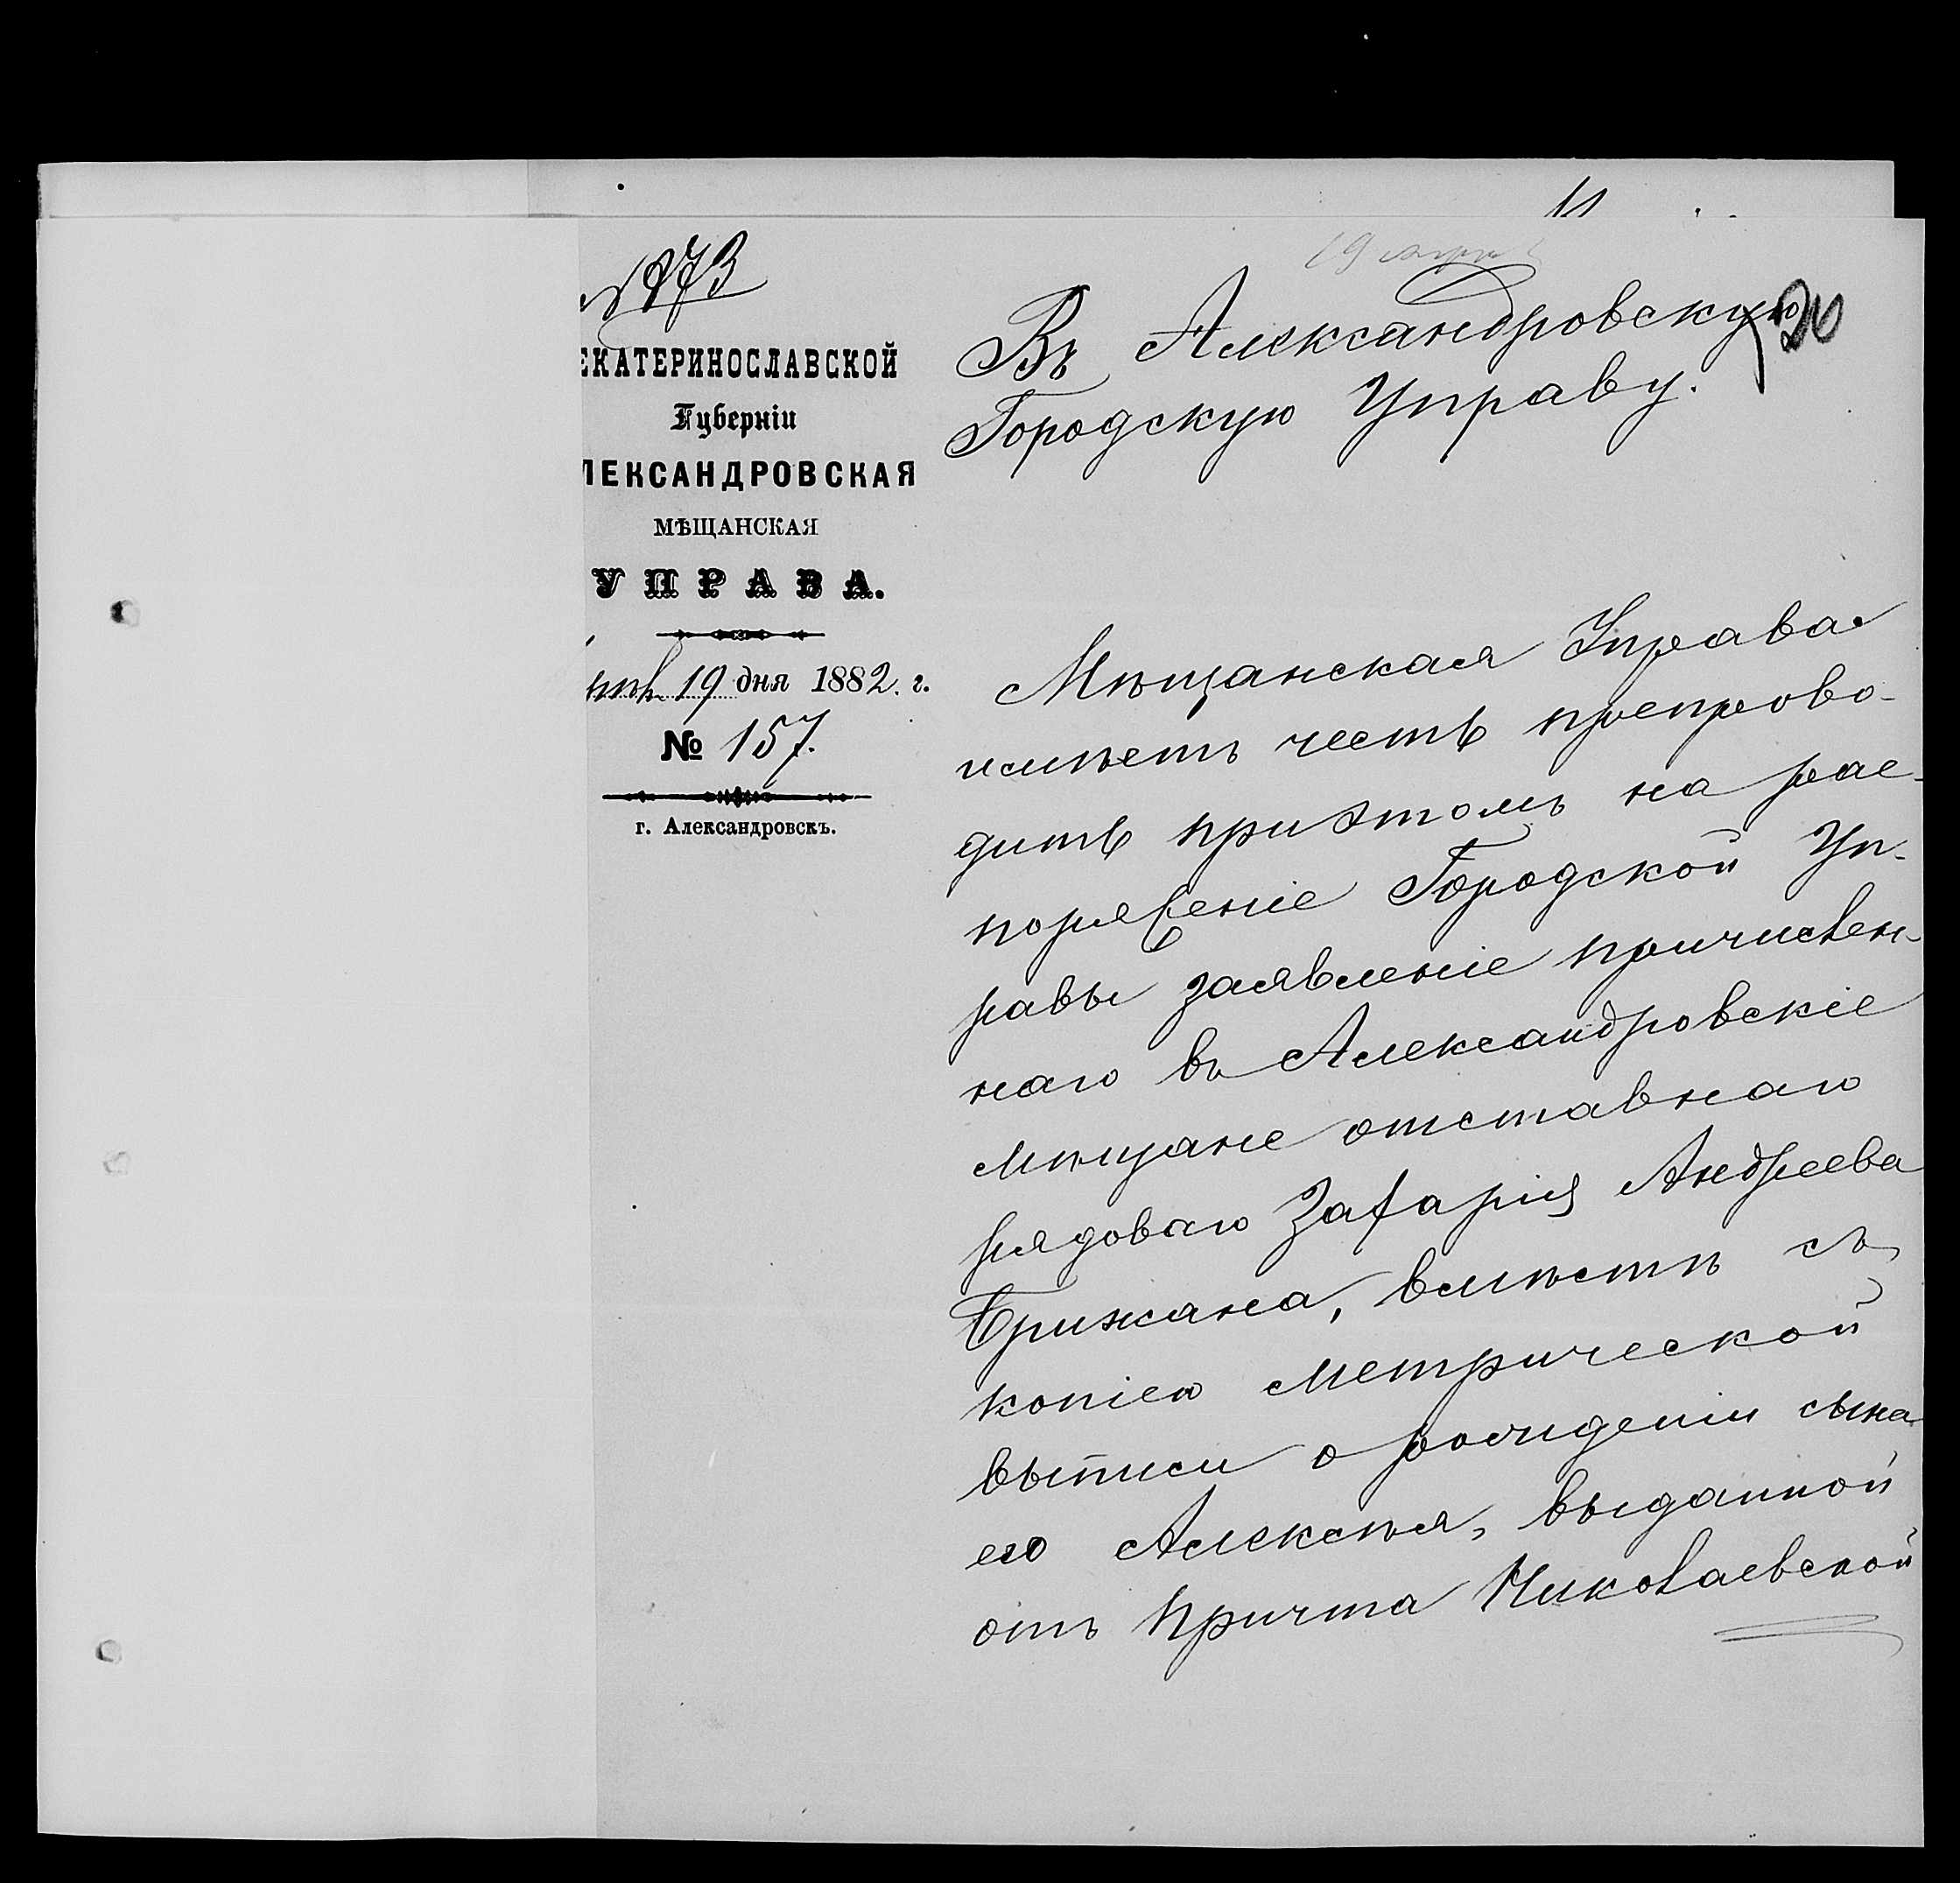 11
19 апр
№ 873
ЕКАТЕРИНОСЛАВСКОЙ
Губерніи
ЛЕКСАНДРОВСКАЯ
МѢЩАНСКАЯ
УПРАВА.
19 дня 1882. г.
№ 157.
г. Александровскъ.
20
Въ Александровскую
Городскую Управу.
Мѣщанская Управа
имѣетъ честь препрово-
дить приэтомъ на рас-
поряженіе Городской Уп-
равы заявленіе причислен-
наго въ Александровскіе
мѣщане отставнаго
рядоваго Захарія Андреева
Брижана, вмѣстѣ съ
копіею метрической
выписи о рожденіи сына
его Алексѣя, выданной
отъ причта Николаевской